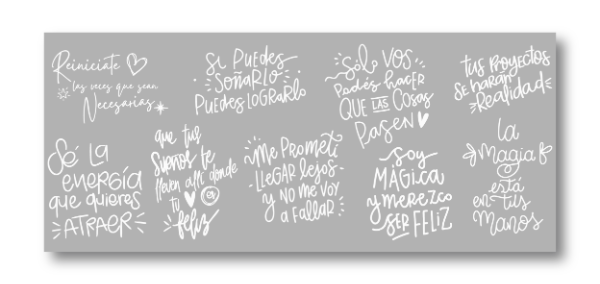 Reiniciate
las veces que sean
Necesarias
Si PUEDES
SOÑARLO
PUEDES LOGRARLO
Sólo VOS
Podés hacer
QUE LAS COSAS
PASEN
tus PROYECTOS
SE HARÁN
Realidad
Sé LA
eneRGÍA
que quieres
ATRAER
que tus
Sueños te
lleven allí donde
tu
feliz
Me Prometí
LLEGAR lejos
y NO ME VOY
a FALLAR
Soy
MÁGICA
y merezco
SER FELIZ
La
Magia
está
en tus
Manos